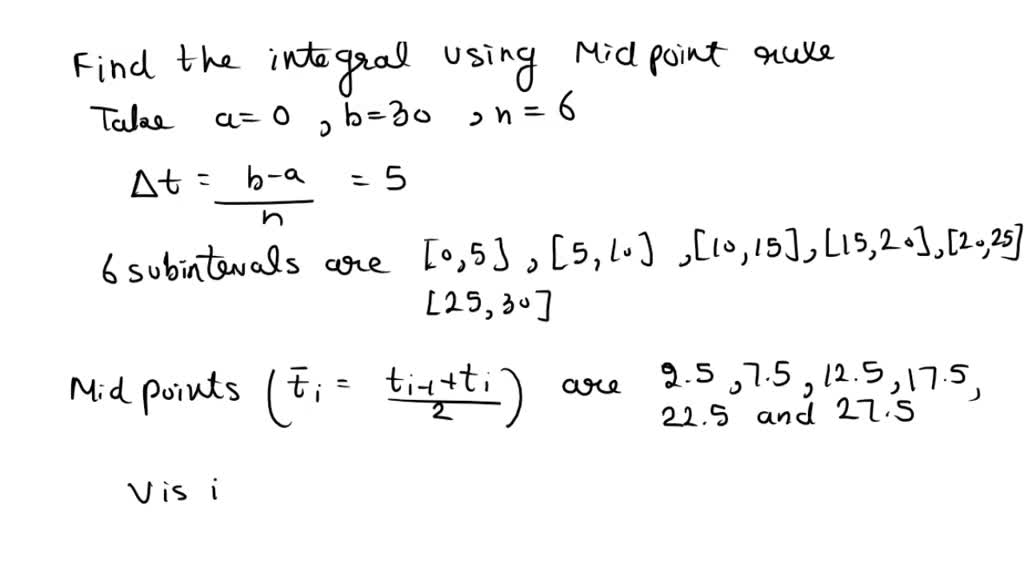 Find the integral using Midpoint rule
Take a=0 , b=30 , n=6
Δt = b-a/n = 5
6 subintevals are [0,5] , [5,10] , [10,15] , [15,20] , [20,25]
[25,30]
Mid points ( t̄i = ti-1+ti/2 ) are 2.5 , 7.5 , 12.5 , 17.5 ,
22.5 and 27.5
V is i